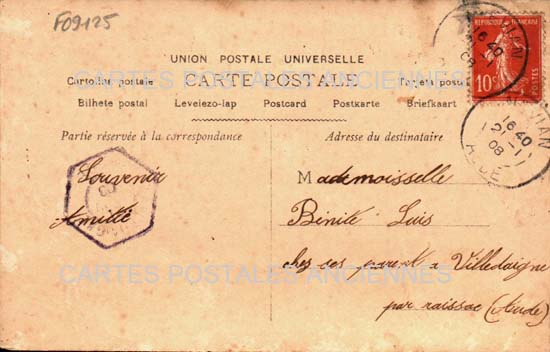 F09125
UNION POSTALE UNIVERSELLE
CARTE POSTALE
Cartolina postale
Tarjeta postal
Bilhete postal Levelezo-lap Postcard Postkarte Briefkaart
Partie réservée à la correspondance
Adresse du destinataire
REPUBLIQUE FRANÇAISE
10c
POSTES
16 40
2-11
08
AUDE
Souvenir
Amitié
Mademoiselle
Bénite Luis
chez ses parent a Villedaigne
par raissac (Aude)
CARTES POSTALES ANCIENNES
CARTES POSTALES ANCIENNES